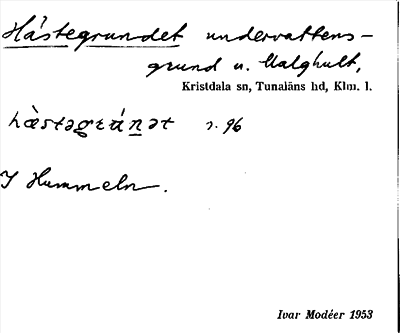 Hästegrundet undervattens-
grund u. Malghult,
Kristdala sn, Tunaläns hd, Klm. l.
hæ̀stəgrúnət s. 96
I Hummeln.
Ivar Modéer 1953